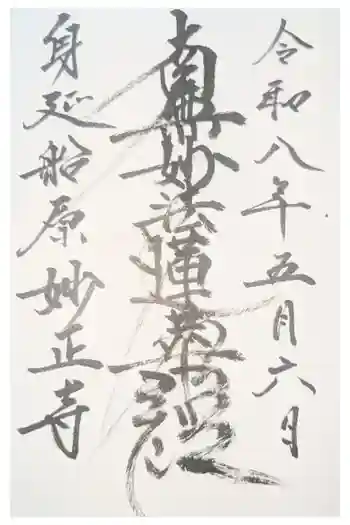 令和八年五月六日
南無妙法蓮華経
身延船原妙正寺